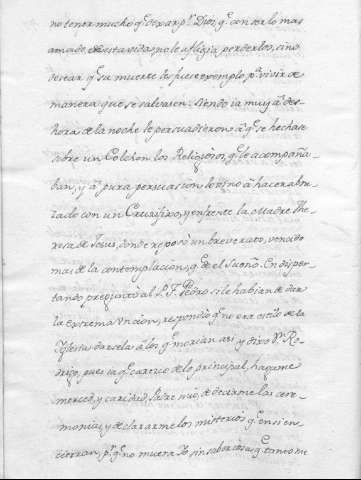 no tener mucho q.e dexar p.r Dios, q.e con ser lo mas
amado, de esta vida, no le afligia perderlos, sino
desear q.e su muerte les fuese exemplo p.a vivir de
manera que se salvasen. Siendo ia muy à des
hora de la noche le persuadieron à q.e se hechase
sobre un Colchon los Religiosos, q.e le acompaña-
ban, y à pura persuasion lo vino à hacer abra
zado con un Crucifixo, y enfrente la Madre The
resa de Jesus, donde reposò un breve rato, vencido
mas de la contemplacion, q.e de el sueño. En disper-
tando, preguntò al P. F. Pedro si le habian de dar
la extrema Uncion, respondiò q.e no era estilo de la
Yglesia darsela à los q.e morian asi y dixo D.n Ro-
drigo, pues ia q.e carezco de lo principal, hagame
merced, y caridad, Padre mio, de decirme las cere-
monias, y declararme los misterios q.e ensien
cierran, p.a q.e no muera Yo sin saber cosas q.e tanto me